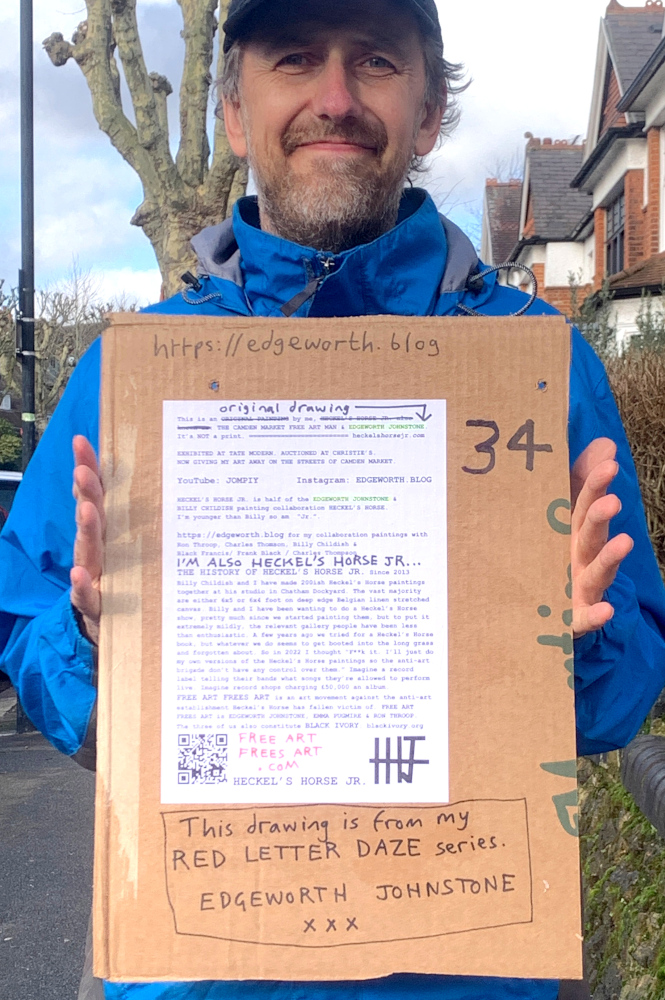 https://edgeworth.blog
original drawing
This is an ORIGINAL PAINTING by me, HECKEL'S HORSE JR. also
THE CAMDEN MARKET FREE ART MAN & EDGEWORTH JOHNSTONE
It's NOT a print. heckelshorsejr.com
34
EXHIBITED AT TATE MODERN. AUCTIONED AT CHRISTIE'S.
NOW GIVING MY ART AWAY ON THE STREETS OF CAMDEN MARKET
YouTube: JOMPIY Instagram: EDGEWORTH.BLOG
HECKEL'S HORSE JR. is half of the EDGEWORTH JOHNSTONE &
BILLY CHILDISH painting collaboration HECKEL'S HORSE.
I'm younger than Billy so am "Jr."
https://edgeworth.blog for my collaboration paintings with
Ron Throop, Charles Thomson, Billy Childish &
Black Francis/ Frank Black / Charles Thompson
I'M ALSO HECKEL'S HORSE JR...
THE HISTORY OF HECKEL'S HORSE JR. Since 2013
Billy Childish and I have made 200ish Heckel's Horse paintings
together at his studio in Chatham Dockyard. The vast majority
are either 6x5 or 6x4 foot on deep edge Belgian linen stretched
canvas. Billy and I have been wanting to do a Heckel's Horse
show, pretty much since we started painting them, but to put it
extremely mildly, the relevant gallery people have been less
than enthusiastic. A few years ago we tried for a Heckel's Horse
book, but whatever we do seems to get booted into the long grass
and forgotten about. So in 2022 I thought "F**k it. I'll just do
my own versions of the Heckel's Horse paintings so the anti-art
brigade don't have any control over them." Imagine a record
label telling their bands what songs they're allowed to perform
live. Imagine record shops charging £50,000 an album
FREE ART FREES ART is an art movement against the anti-art
establishment Heckel's Horse has fallen victim of. FREE ART
FREES ART is EDGEWORTH JOHNSTONE, EMMA PUGMIRE & RON THROOP.
The three of us also constitute BLACK IVORY. blackivory.org
FREE ART
FREES ART
.COM
HECKEL'S HORSE JR.
HJ
This drawing is from my
RED LETTER DAZE series.
EDGEWORTH JOHNSTONE
x x x